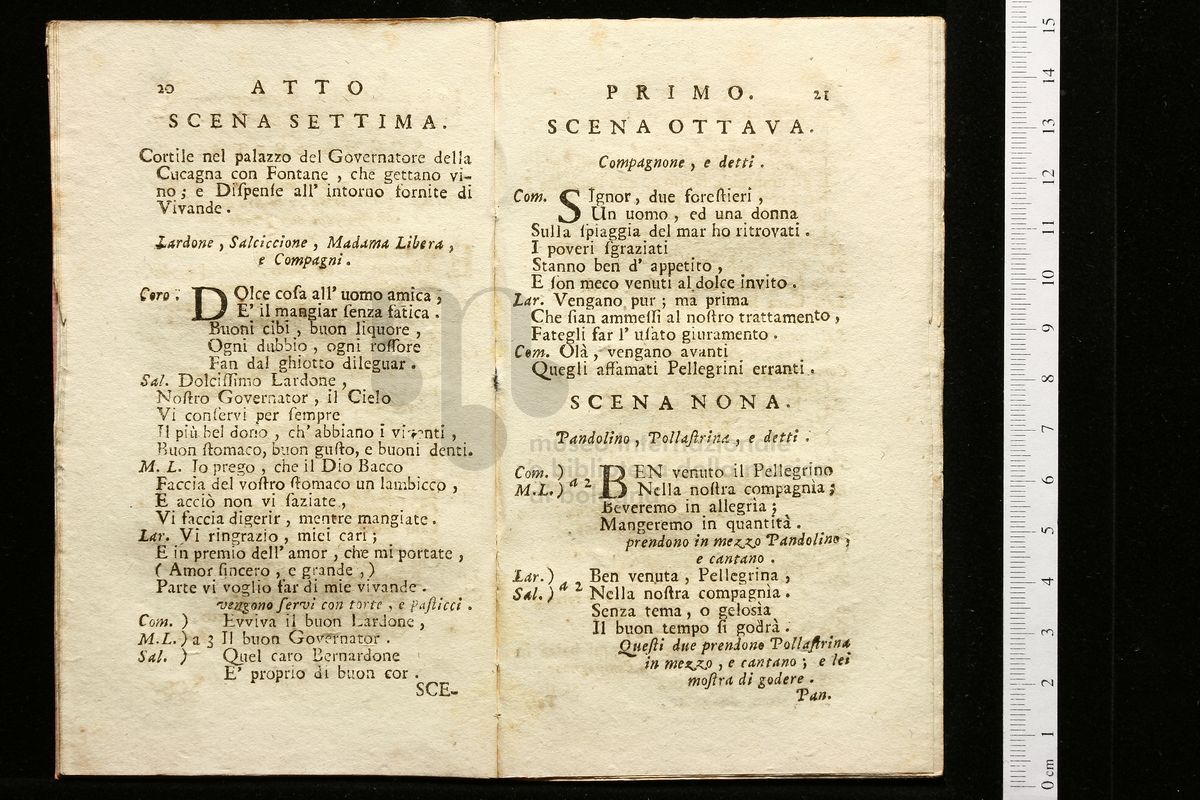 20 ATTO
SCENA SETTIMA.
Cortile nel palazzo del Governatore della
Cucagna con Fontane, che gettano vi-
no; e Diſpenſe all' intorno fornite di
Vivande.
Lardone, Salciccione, Madama Libera,
e Compagni.
Coro. DOlce coſa all' uomo amica,
E' il mangiar ſenza fatica.
Buoni cibi, buon liquore,
Ogni dubbio, ogni roſſore
Fan dal ghiotto dileguar.
Sal. Dolciſſimo Lardone,
Noſtro Governator, il Cielo
Vi conſervi per ſempre
Il più bel dono, ch' abbiano i viventi,
Buon ſtomaco, buon guſto, e buoni denti.
M. L. Io prego, che il Dio Bacco
Faccia del voſtro ſtomaco un lambicco,
E acciò non vi ſaziate,
Vi faccia digerir, mentre mangiate.
Lar. Vi ringrazio, miei cari;
E in premio dell' amor, che mi portate,
( Amor ſincero, e grande,)
Parte vi voglio far di mie vivande.
vengono ſervi con torte, e paſticci.
Com. ) Evviva il buon Lardone,
M.L. ) a 3 Il buon Governator.
Sal. ) Quel caro Bernardone
E' proprio di buon cor.
SCE-
PRIMO. 21
SCENA OTTAVA.
Compagnone, e detti.
Com. SIgnor, due foreſtieri,
Un uomo, ed una donna
Sulla ſpiaggia del mar ho ritrovati.
I poveri ſgraziati
Stanno ben d' appetito,
E ſon meco venuti al dolce invito.
Lar. Vengano pur; ma prima
Che ſian ammeſſi al noſtro trattamento,
Fategli far l' uſato giuramento.
Com. Olà, vengano avanti
Quegli affamati Pellegrini erranti.
SCENA NONA.
Pandolino, Pollaſtrina, e detti.
Com. ) BEN venuto il Pellegrino
M.L. ) a 2 Nella noſtra compagnìa;
Beveremo in allegrìa;
Mangeremo in quantità.
prendono in mezzo Pandolino,
e cantano.
Lar. ) Ben venuta, Pellegrina,
Sal. ) a 2 Nella noſtra compagnìa.
Senza tema, o geloſia
Il buon tempo ſi godrà.
Queſti due prendono Pollaſtrina
in mezzo, e cantano; e lei
moſtra di godere.
Pan.
museo internazionale
e biblioteca della musica
di bologna
0 cm 1 2 3 4 5 6 7 8 9 10 11 12 13 14 15